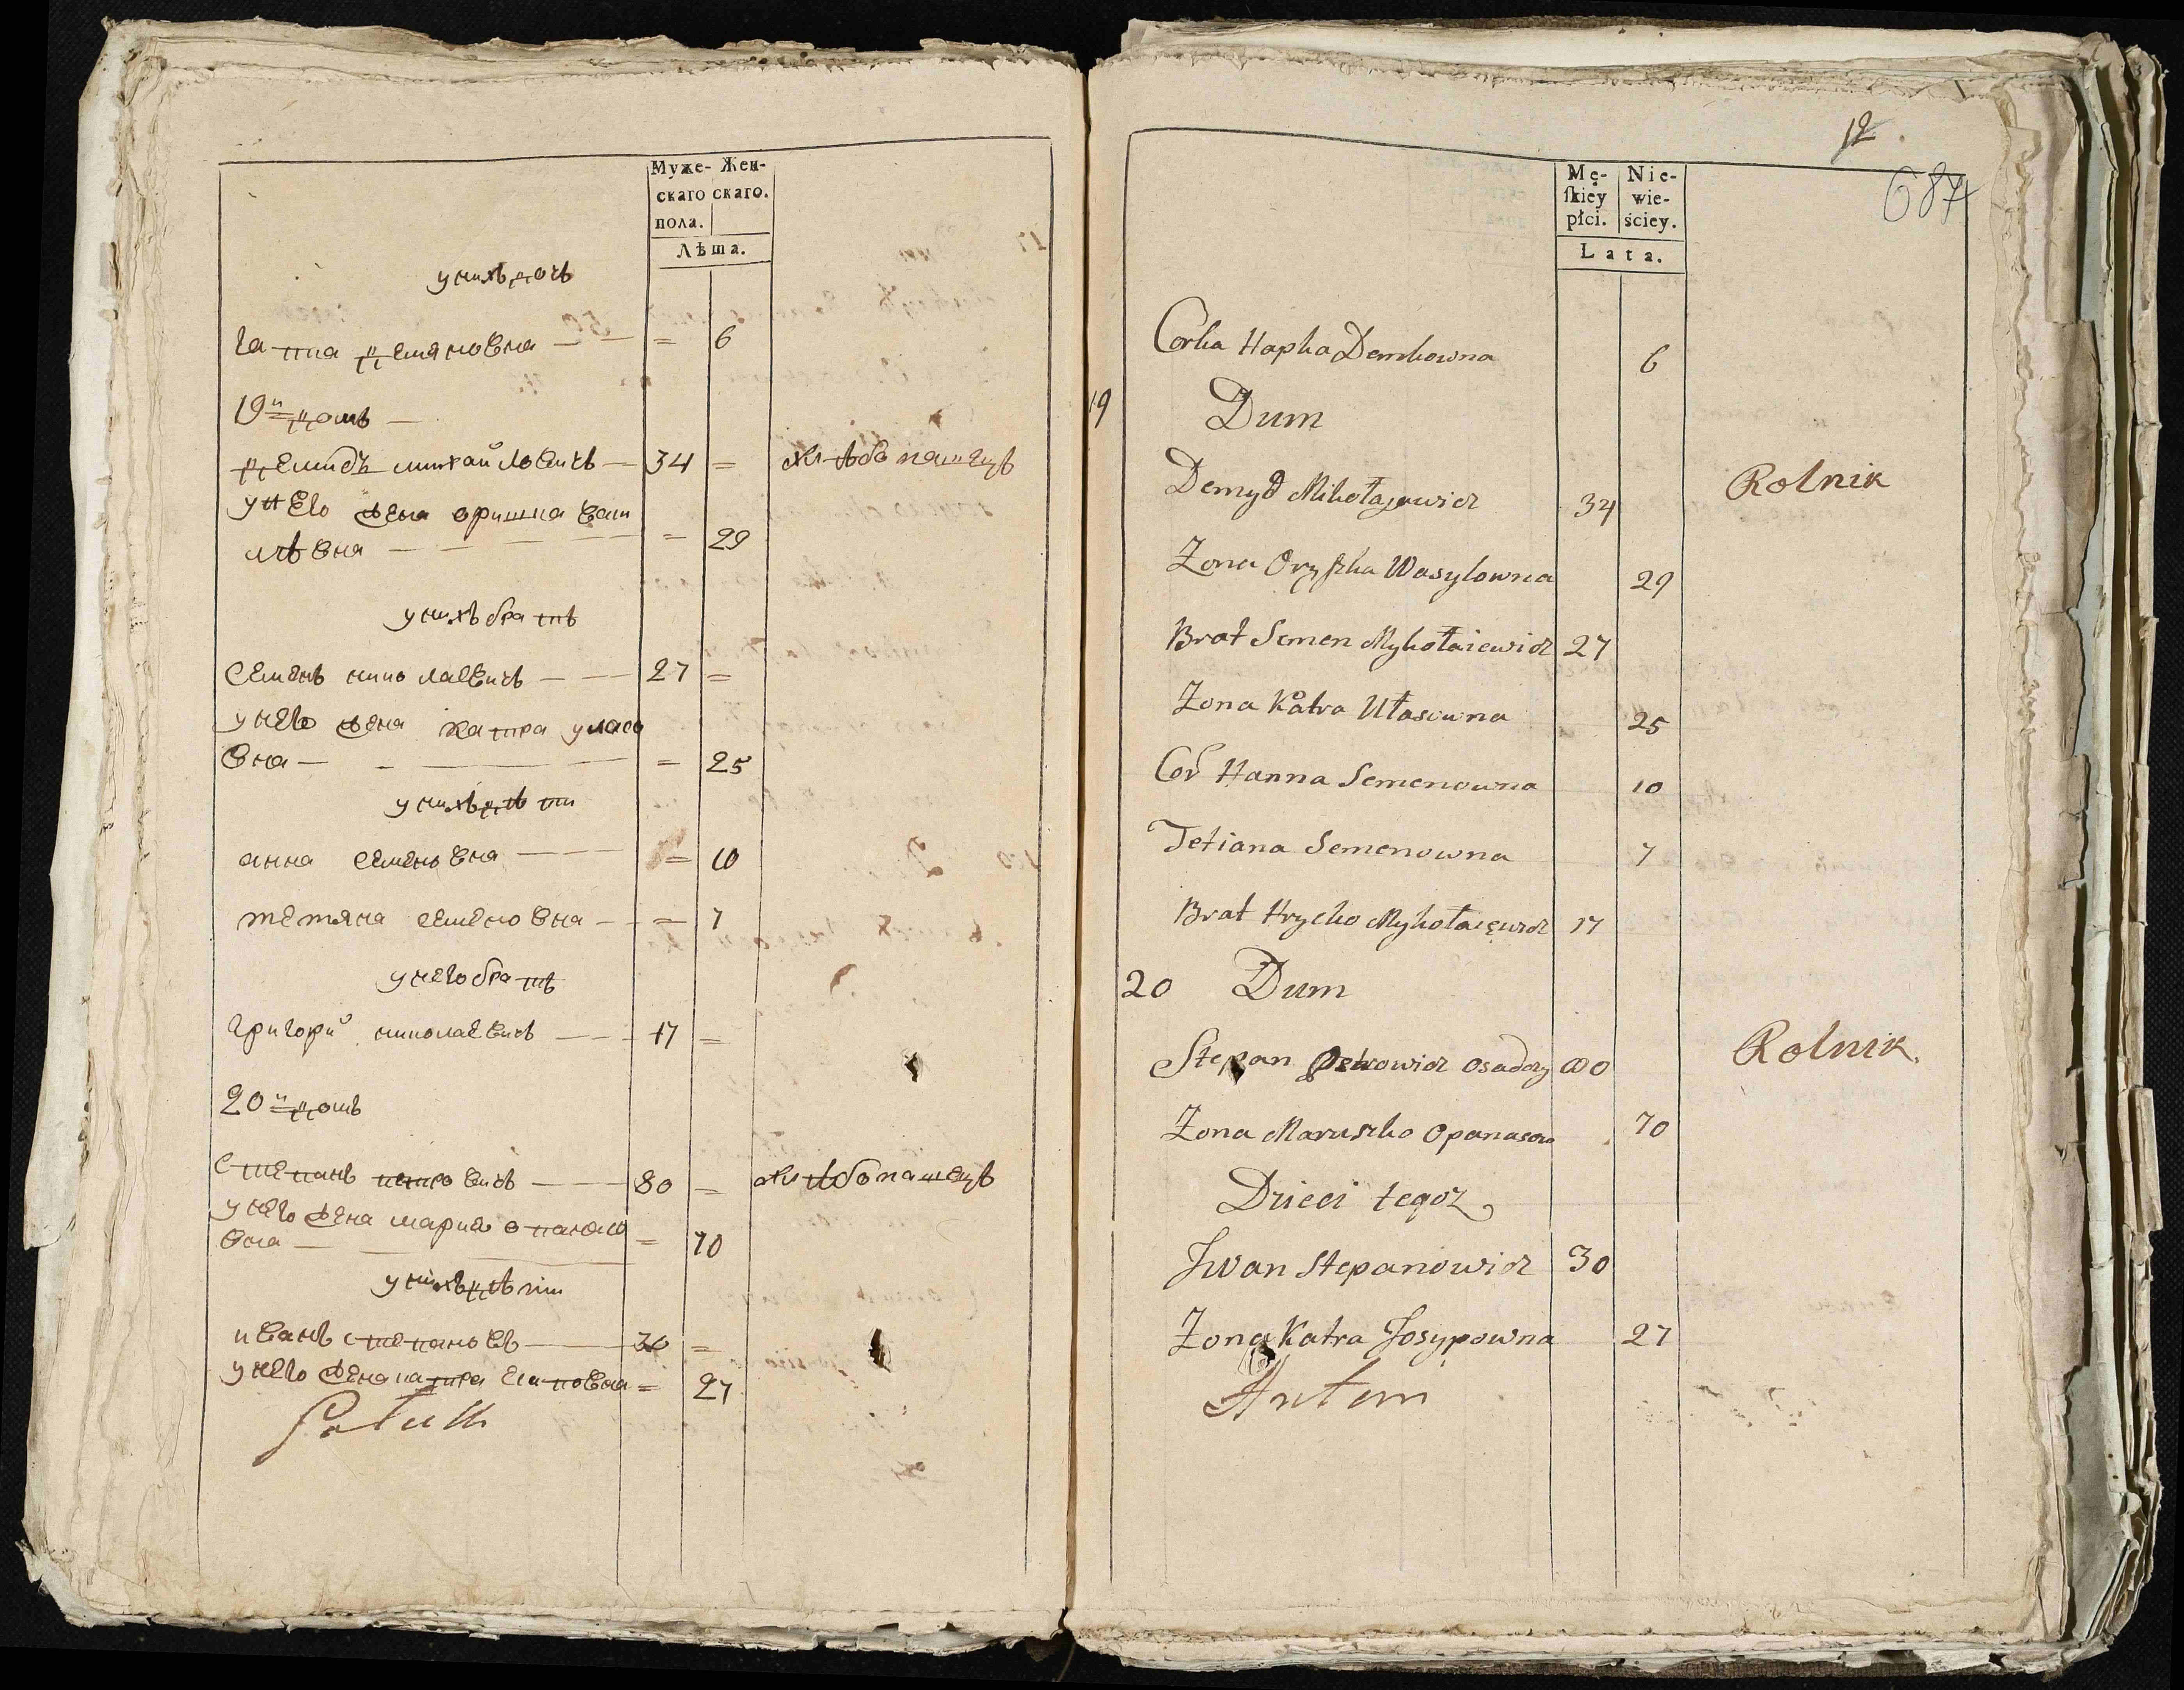 Муже- Жен-
скаго скаго.
пола.
Лѣта.
у нихъ дочь
гаппа демяновна — = 6
19й домъ —
демидъ михайловичъ — 34 = хлѣбопашецъ
у него жена оришка васи
лѣвна — = 29
у нихъ братъ
семенъ николаевичъ — 27 =
у него жена катра уласо
вна — = 25
у нихъ дѣти
анна семеновна — = 10
тетяна семеновна — = 7
у него братъ
григорий николаевичъ — 17 =
20й домъ
степанъ петровичъ — 80 = хлѣбопашецъ
у него жена мария опанасо
вна — = 70
у нихъ дѣти
иванъ степановъ — 30 =
у него жена катра есиповна = 27
12
687
Mę- Nie-
ſkiey wie-
płci. ściey.
Lata.
Corka Hapka Demkowna 6
19 Dum
Demyd Mikołajewicz 34 Rolnik
Zona Oryszka Wasylowna 29
Brat Semen Mykołaiewicz 27
Zona Katra Ułasowna 25
Cor Hanna Semenowna 10
Tetiana Semenowna 7
Brat Hrycko Mykołaiewicz 17
20 Dum
Stepan Petrowicz osadczy 80 Rolnik.
Zona Maruszka Opanasow 70
Dzieci tegoz
Jwan Stepanowicz 30
Zona Katra Josypowna 27